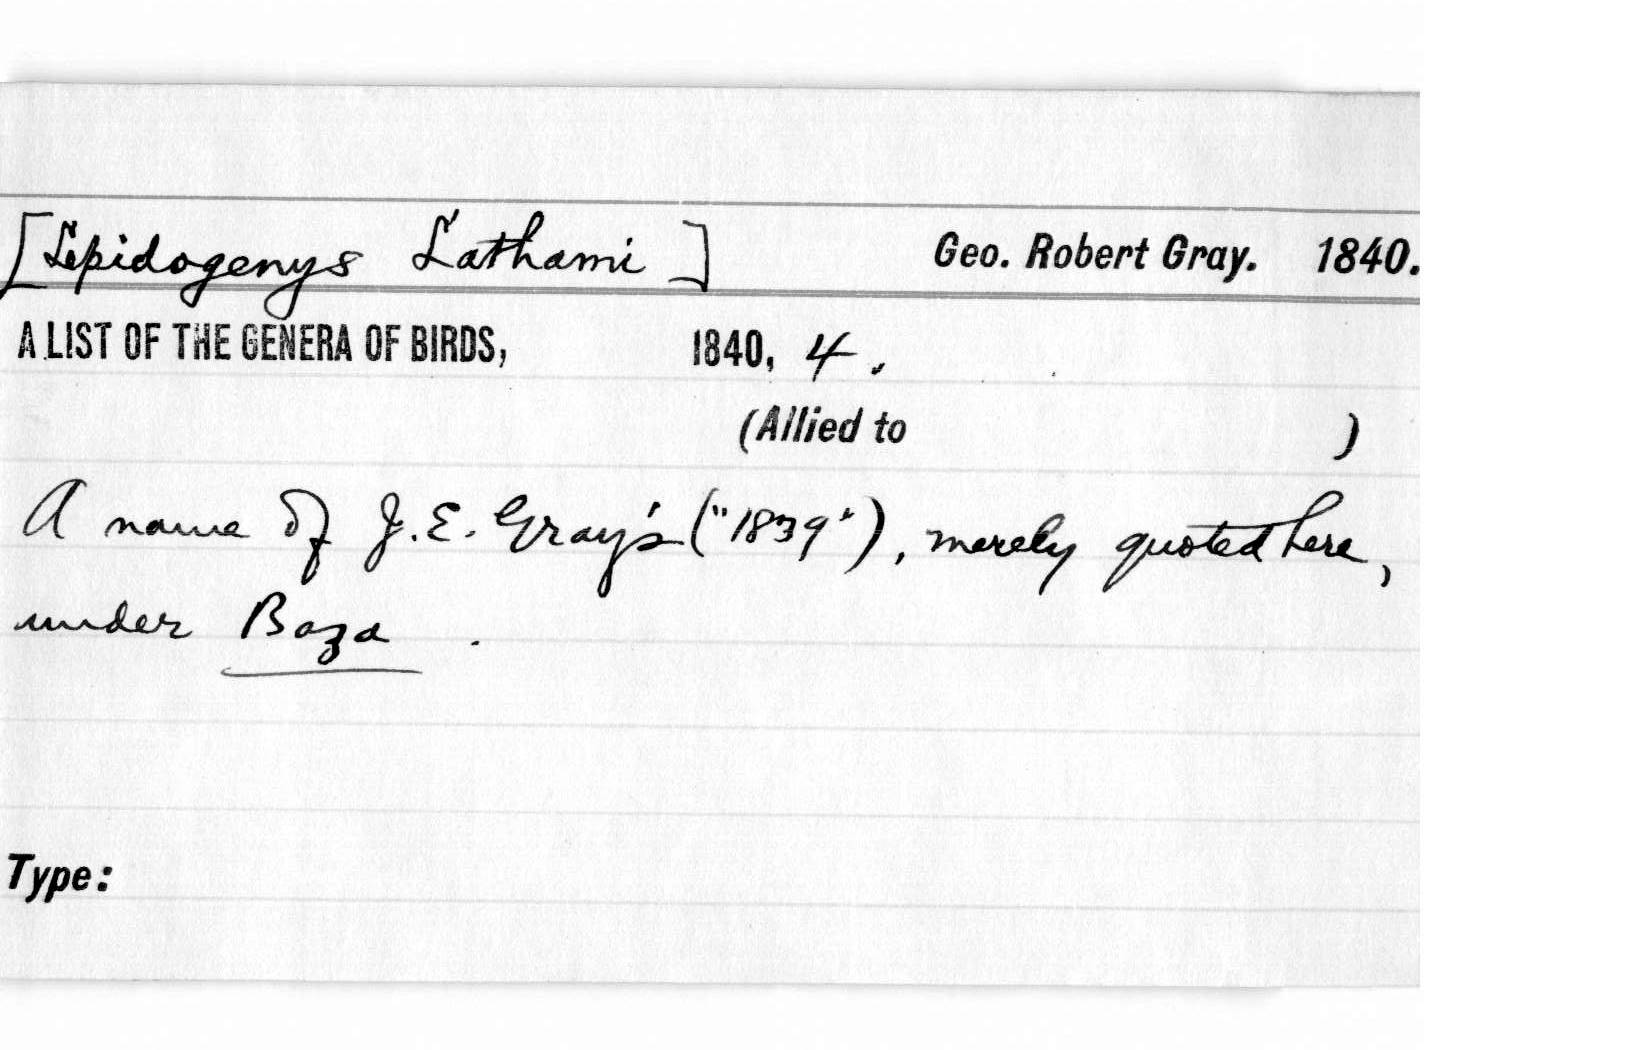 [Lepidogenys Lathami] Geo. Robert Gray. 1840.
A LIST OF THE GENERA OF BIRDS, 1840, 4.
(Allied to )
A name of J.E. Gray's ("1839"), merely quoted here,
under Baza.
Type: